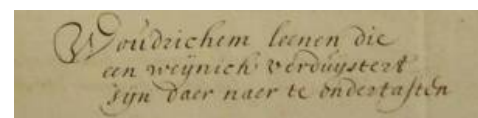 Woudrichem leenen die
een weÿnich verduÿstert
sÿn daer naer te ondertasten